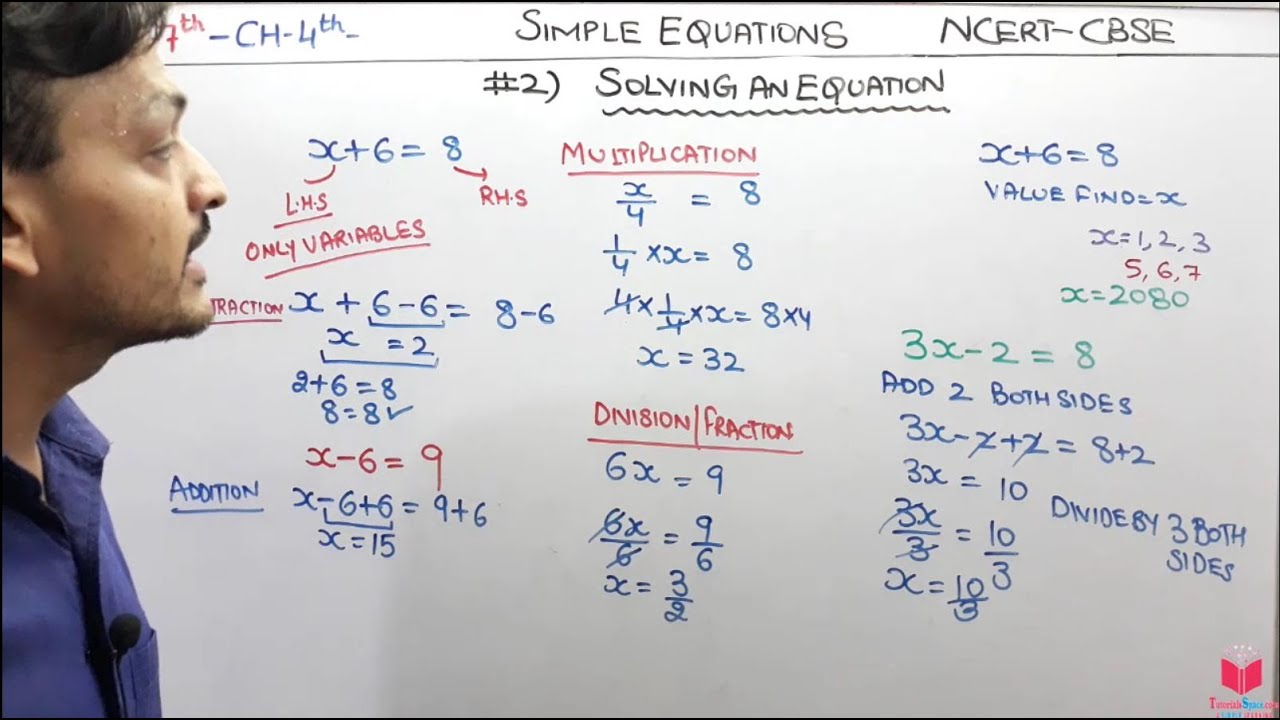 7th - CH-4th- SIMPLE EQUATIONS NCERT-CBSE
#2) SOLVING AN EQUATION
x+6 = 8
L.H.S
RH.S
ONLY VARIABLES
TRACTION x + 6 - 6 = 8-6
x = 2
2+6 = 8
8 = 8 ✓
x-6 = 9
ADDITION x-6+6 = 9+6
x = 15
MULTIPLICATION
x/4 = 8
1/4 × x = 8
4 × 1/4 × x = 8×4
x = 32
DIVISION/FRACTION
6x = 9
6x/6 = 9/6
x = 3/2
x+6 = 8
VALUE FIND = x
x = 1, 2, 3
5, 6, 7
x = 2080
3x - 2 = 8
ADD 2 BOTH SIDES
3x - 2 + 2 = 8+2
3x = 10
3x/3 = 10/3
DIVIDE BY 3 BOTH
SIDES
x = 10/3
TutorialsSpace.com